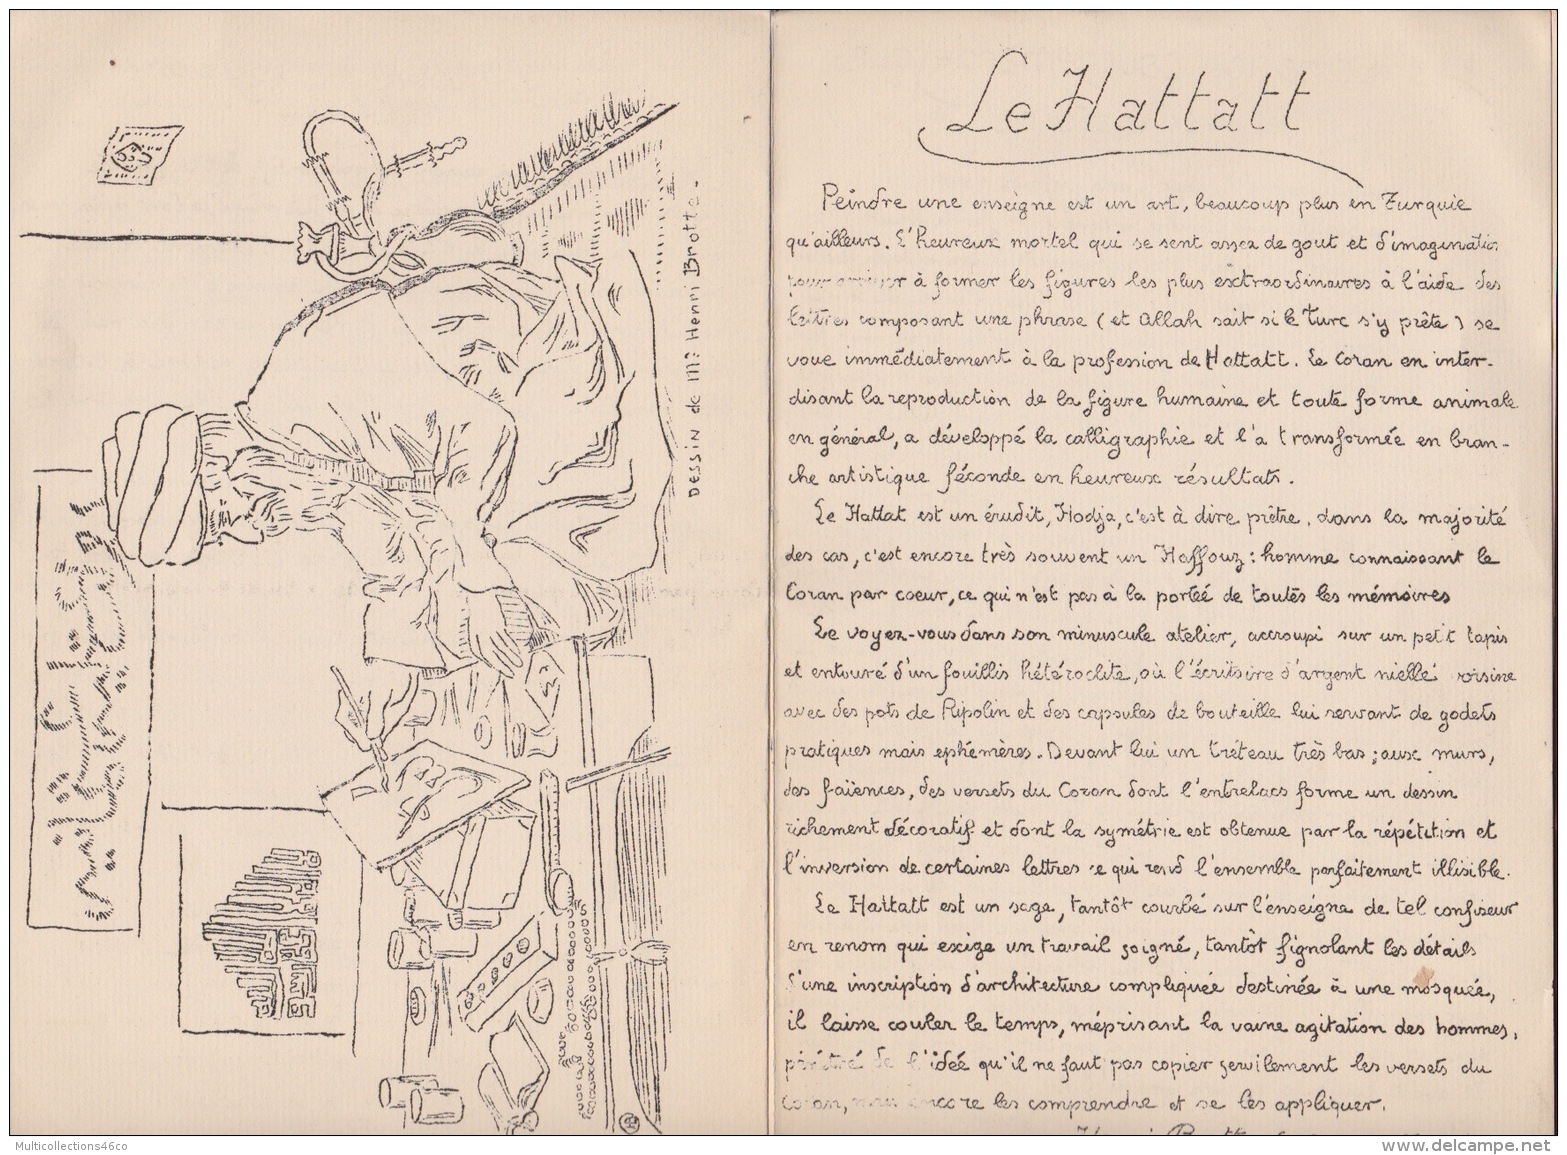 DESSIN de Mr Henri Brotte.
Le Hattatt
Peindre une enseigne est un art, beaucoup plus en Turquie
qu'ailleurs. L'heureux mortel qui se sent assez de gout et d'imagination
pour arriver à former les figures les plus extraordinaires à l'aide des
lettres composant une phrase (et Allah sait si le Turc s'y prête) se
voue immédiatement à la profession de Hattatt. Le Coran en inter-
disant la reproduction de la figure humaine et toute forme animale
en général, a développé la calligraphie et l'a transformée en bran-
che artistique féconde en heureux résultats.
Le Hattat est un érudit, Hodja, c'est à dire prêtre, dans la majorité
des cas, c'est encore très souvent un Haffouz: homme connaissant le
Coran par coeur, ce qui n'est pas à la portée de toutes les mémoires
Le voyez-vous dans son minuscule atelier, accroupi sur un petit tapis
et entouré d'un fouillis hétéroclite, où l'écritoire d'argent niellé voisine
avec des pots de Ripolin et des capsules de bouteille lui servant de godets
pratiques mais ephémères. Devant lui un tréteau très bas; aux murs,
des faïences, des versets du Coran dont l'entrelacs forme un dessin
richement décoratif et dont la symétrie est obtenue par la répétition et
l'inversion de certaines lettres ce qui rend l'ensemble parfaitement illisible.
Le Hattatt est un sage, tantôt courbé sur l'enseigne de tel confiseur
en renom qui exige un travail soigné, tantôt fignolant les détails
d'une inscription d'architecture compliquée destinée à une mosquée,
il laisse couler le temps, méprisant la vaine agitation des hommes,
pénétré de l'idée qu'il ne faut pas copier servilement les versets du
Coran, mais encore les comprendre et se les appliquer.
Multicollections46co
www.delcampe.net